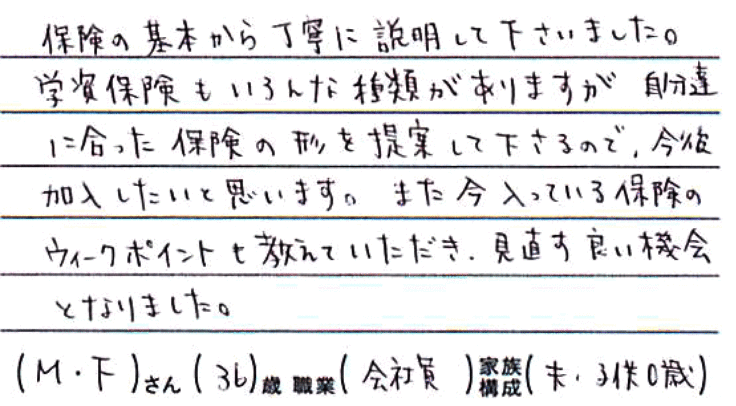 保険の基本から丁寧に説明して下さいました。
学資保険もいろんな種類がありますが 自分達
に合った保険の形を提案して下さるので、今後
加入したいと思います。また今入っている保険の
ウィークポイントも教えていただき、見直す良い機会
となりました。
(M・F)さん(36)歳 職業(会社員)家族構成(夫・子供0歳)